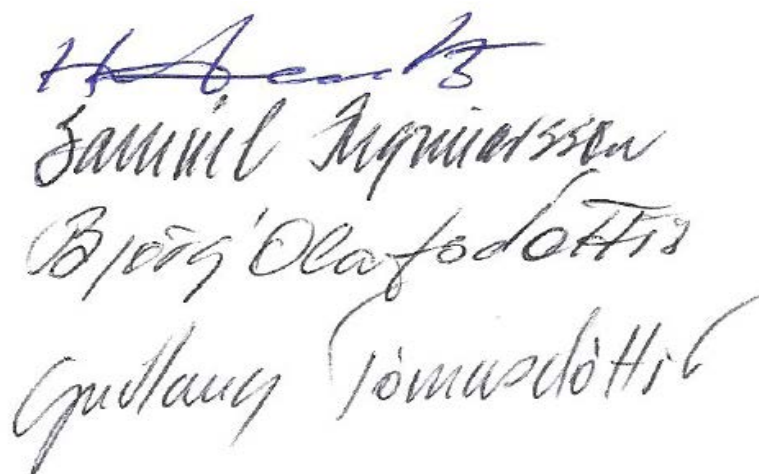 Samúel Ingmarsson
Björg Ólafsdóttir
Guðlaug Tómasdóttir